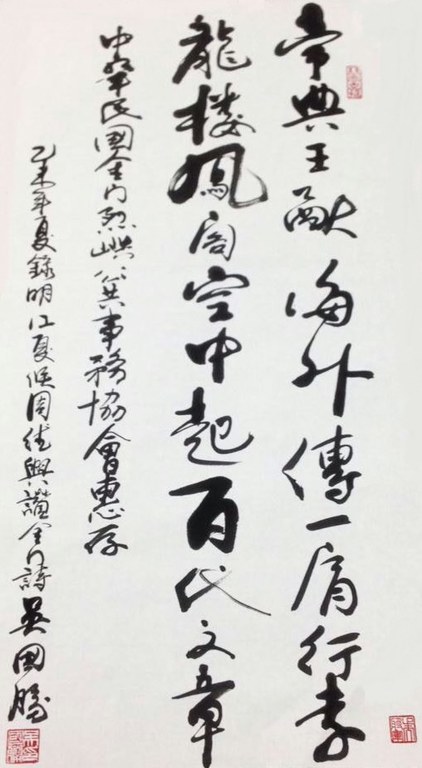 帝典王猷海外傳一肩行李
龍楼鳳阁空中起百代文章
中華民國金门烈嶼公共事務協會惠存
乙未年夏錄明江夏侯周德興讚金门詩吴